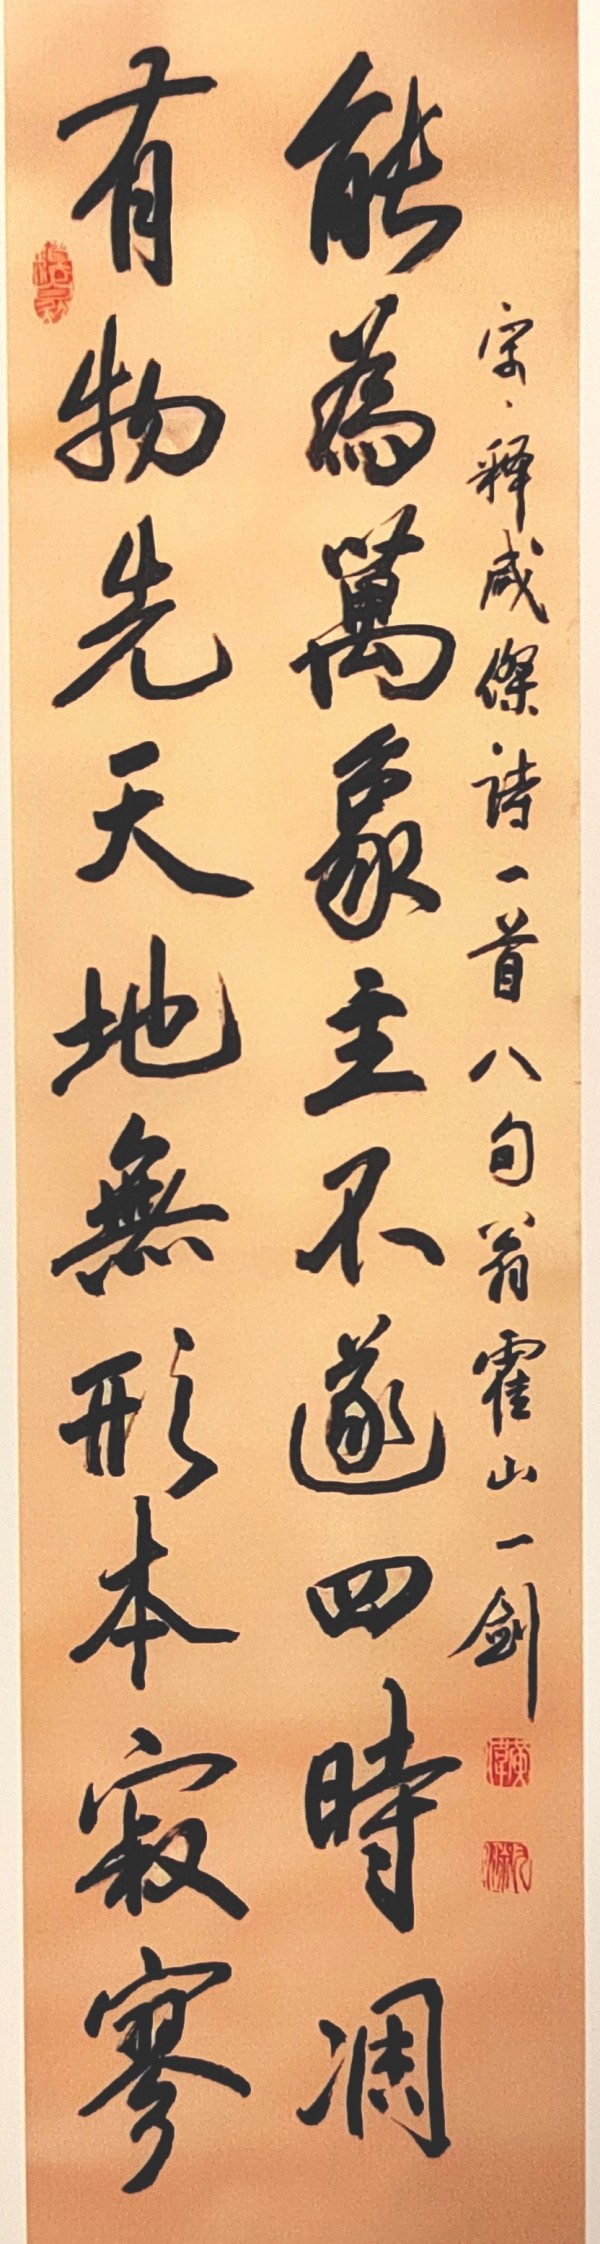 有物先天地無形本寂寥
能為萬象主不遂四時凋
宋、释咸傑詩一首八句翁霍山一劍